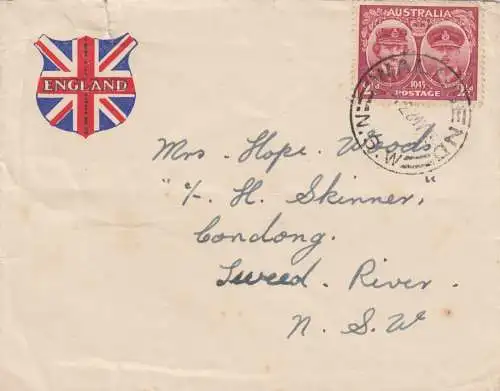 ENGLAND
AUSTRALIA
2½ᴰ 1945 2½ᴰ
POSTAGE
N.S.W
Mrs Hope Woods
"c/- H. Skinner, "
Condong.
Tweed River.
N. S. W